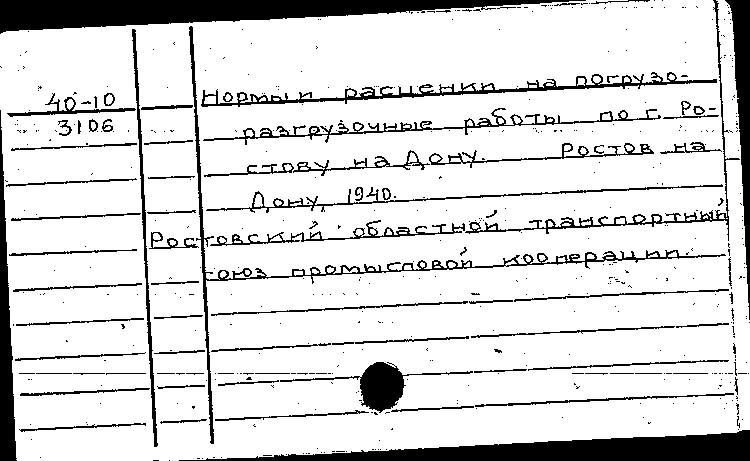 40-10
3106
Нормы и расценки на погрузо-
разгрузочные работы по г. Ро-
стову на Дону. Ростов на
Дону, 1940.
Ростовский областной транспортный
союз промысловой кооперации.